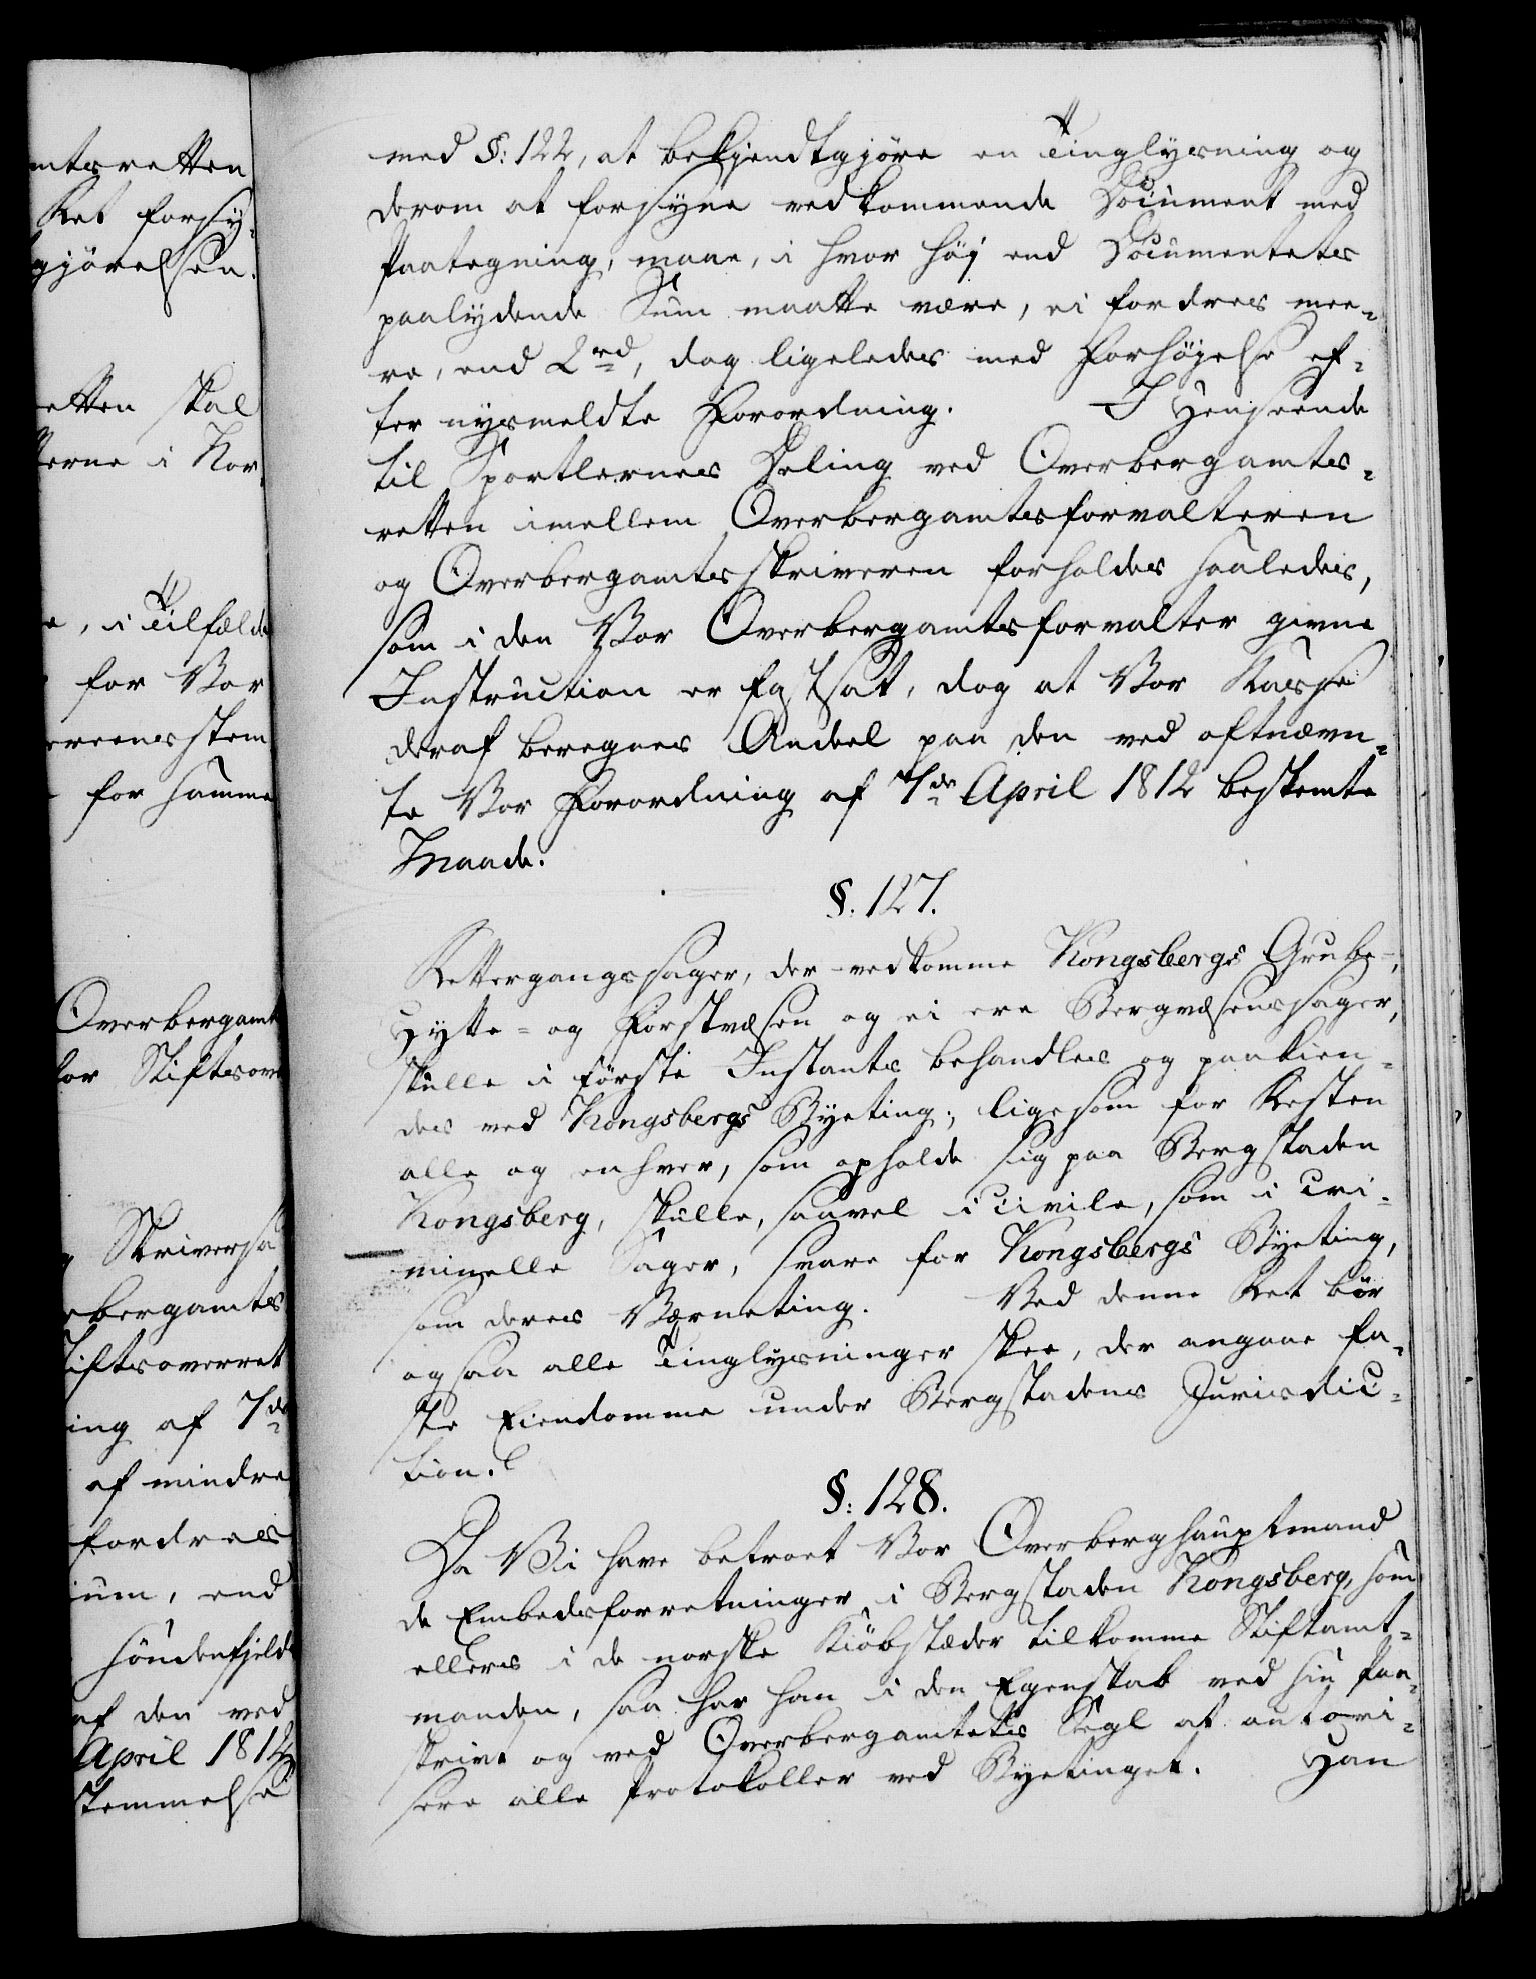 mtsretten
Ret forsy-
gjörelsen.
etten skal
terne i Nor
e, i Tilfælde
for Vor
ereensstem
for samme
Overbergamt
for Stiftsov
Skriversa
ebergamts
tiftsoverret
ing af 7de
af mindre
fordres
um, end
Söndenfjeld
af den ved
April 1812
stemmelse
med §: 122, at bekjendtgjöre en Tinglysning og
derom at forsyne vedkommende Document med
Paategning, maae, i hvor höj end Documentets
paalydende Sum maatte være, ei fordres mee-
re, end 2rd, dog ligeledes med Forhöjelse ef-
ter nysmeldte Forordning. I Henseende
til Sportlernes Deling ved Overbergamts-
retten imellem Overbergamtsforvalteren
og Overbergamtsskriveren forholdes saaledes,
som i den Vor Overbergamtsforvalter givne
Instruction er fastsat, dog at Vor Kasse
deraf beregnes Andeel paa den ved oftnævn-
te Vor Forordning af 7de April 1812 bestemte
Maade.
§: 127.
Rettergangssager, der vedkomme Kongsbergs Grube-,
Hytte- og Forstvæsen og ei ere Bergvæsenssager,
skulle i förste Instants behandles og paakien-
des ved Kongsbergs Byeting; ligesom for Resten
alle og enhver, som opholde sig paa Bergstaden
Kongsberg, skulle, saavel i civile, som i cri-
minelle Sager, svare for Kongsbergs Byeting,
som deres Værneting. Ved denne Ret bör
ogsaa alle Tinglysninger skee, der angaae fa-
ste Eiendomme under Bergstadens Jurisdic-
tion.
§: 128.
Da Vi have betroet Vor Overberghauptmand
de Embedsforretninger i Bergstaden Kongsberg, som
ellers i de norske Kiöbstæder tilkomme Stiftamt-
manden, saa har han i den Egenskab ved sin Paa-
skrivt og ved Overbergamtets Segl at autori-
sere alle Protokoller ved Byetinget. Han